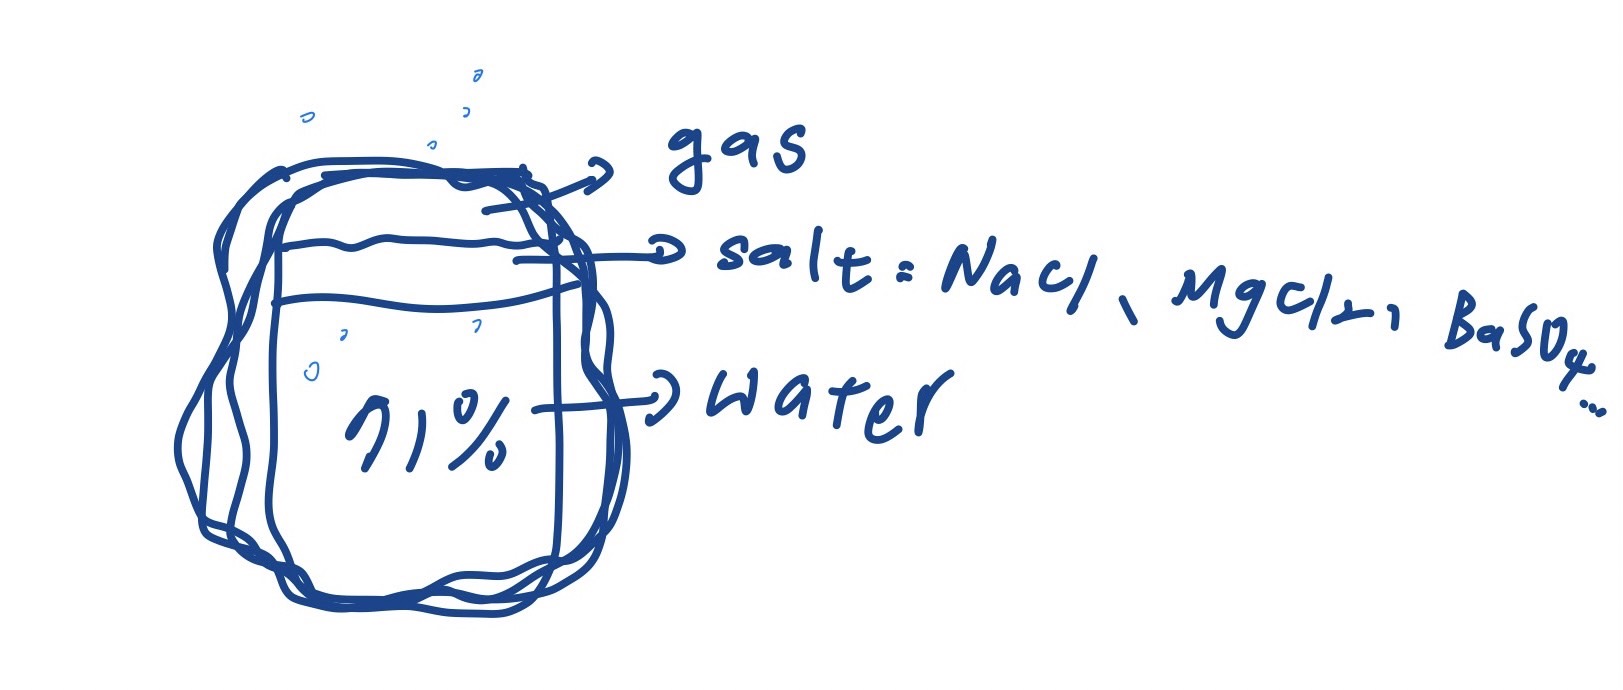 gas
salt: NaCl、MgCl2, BaSO4...
71%
water